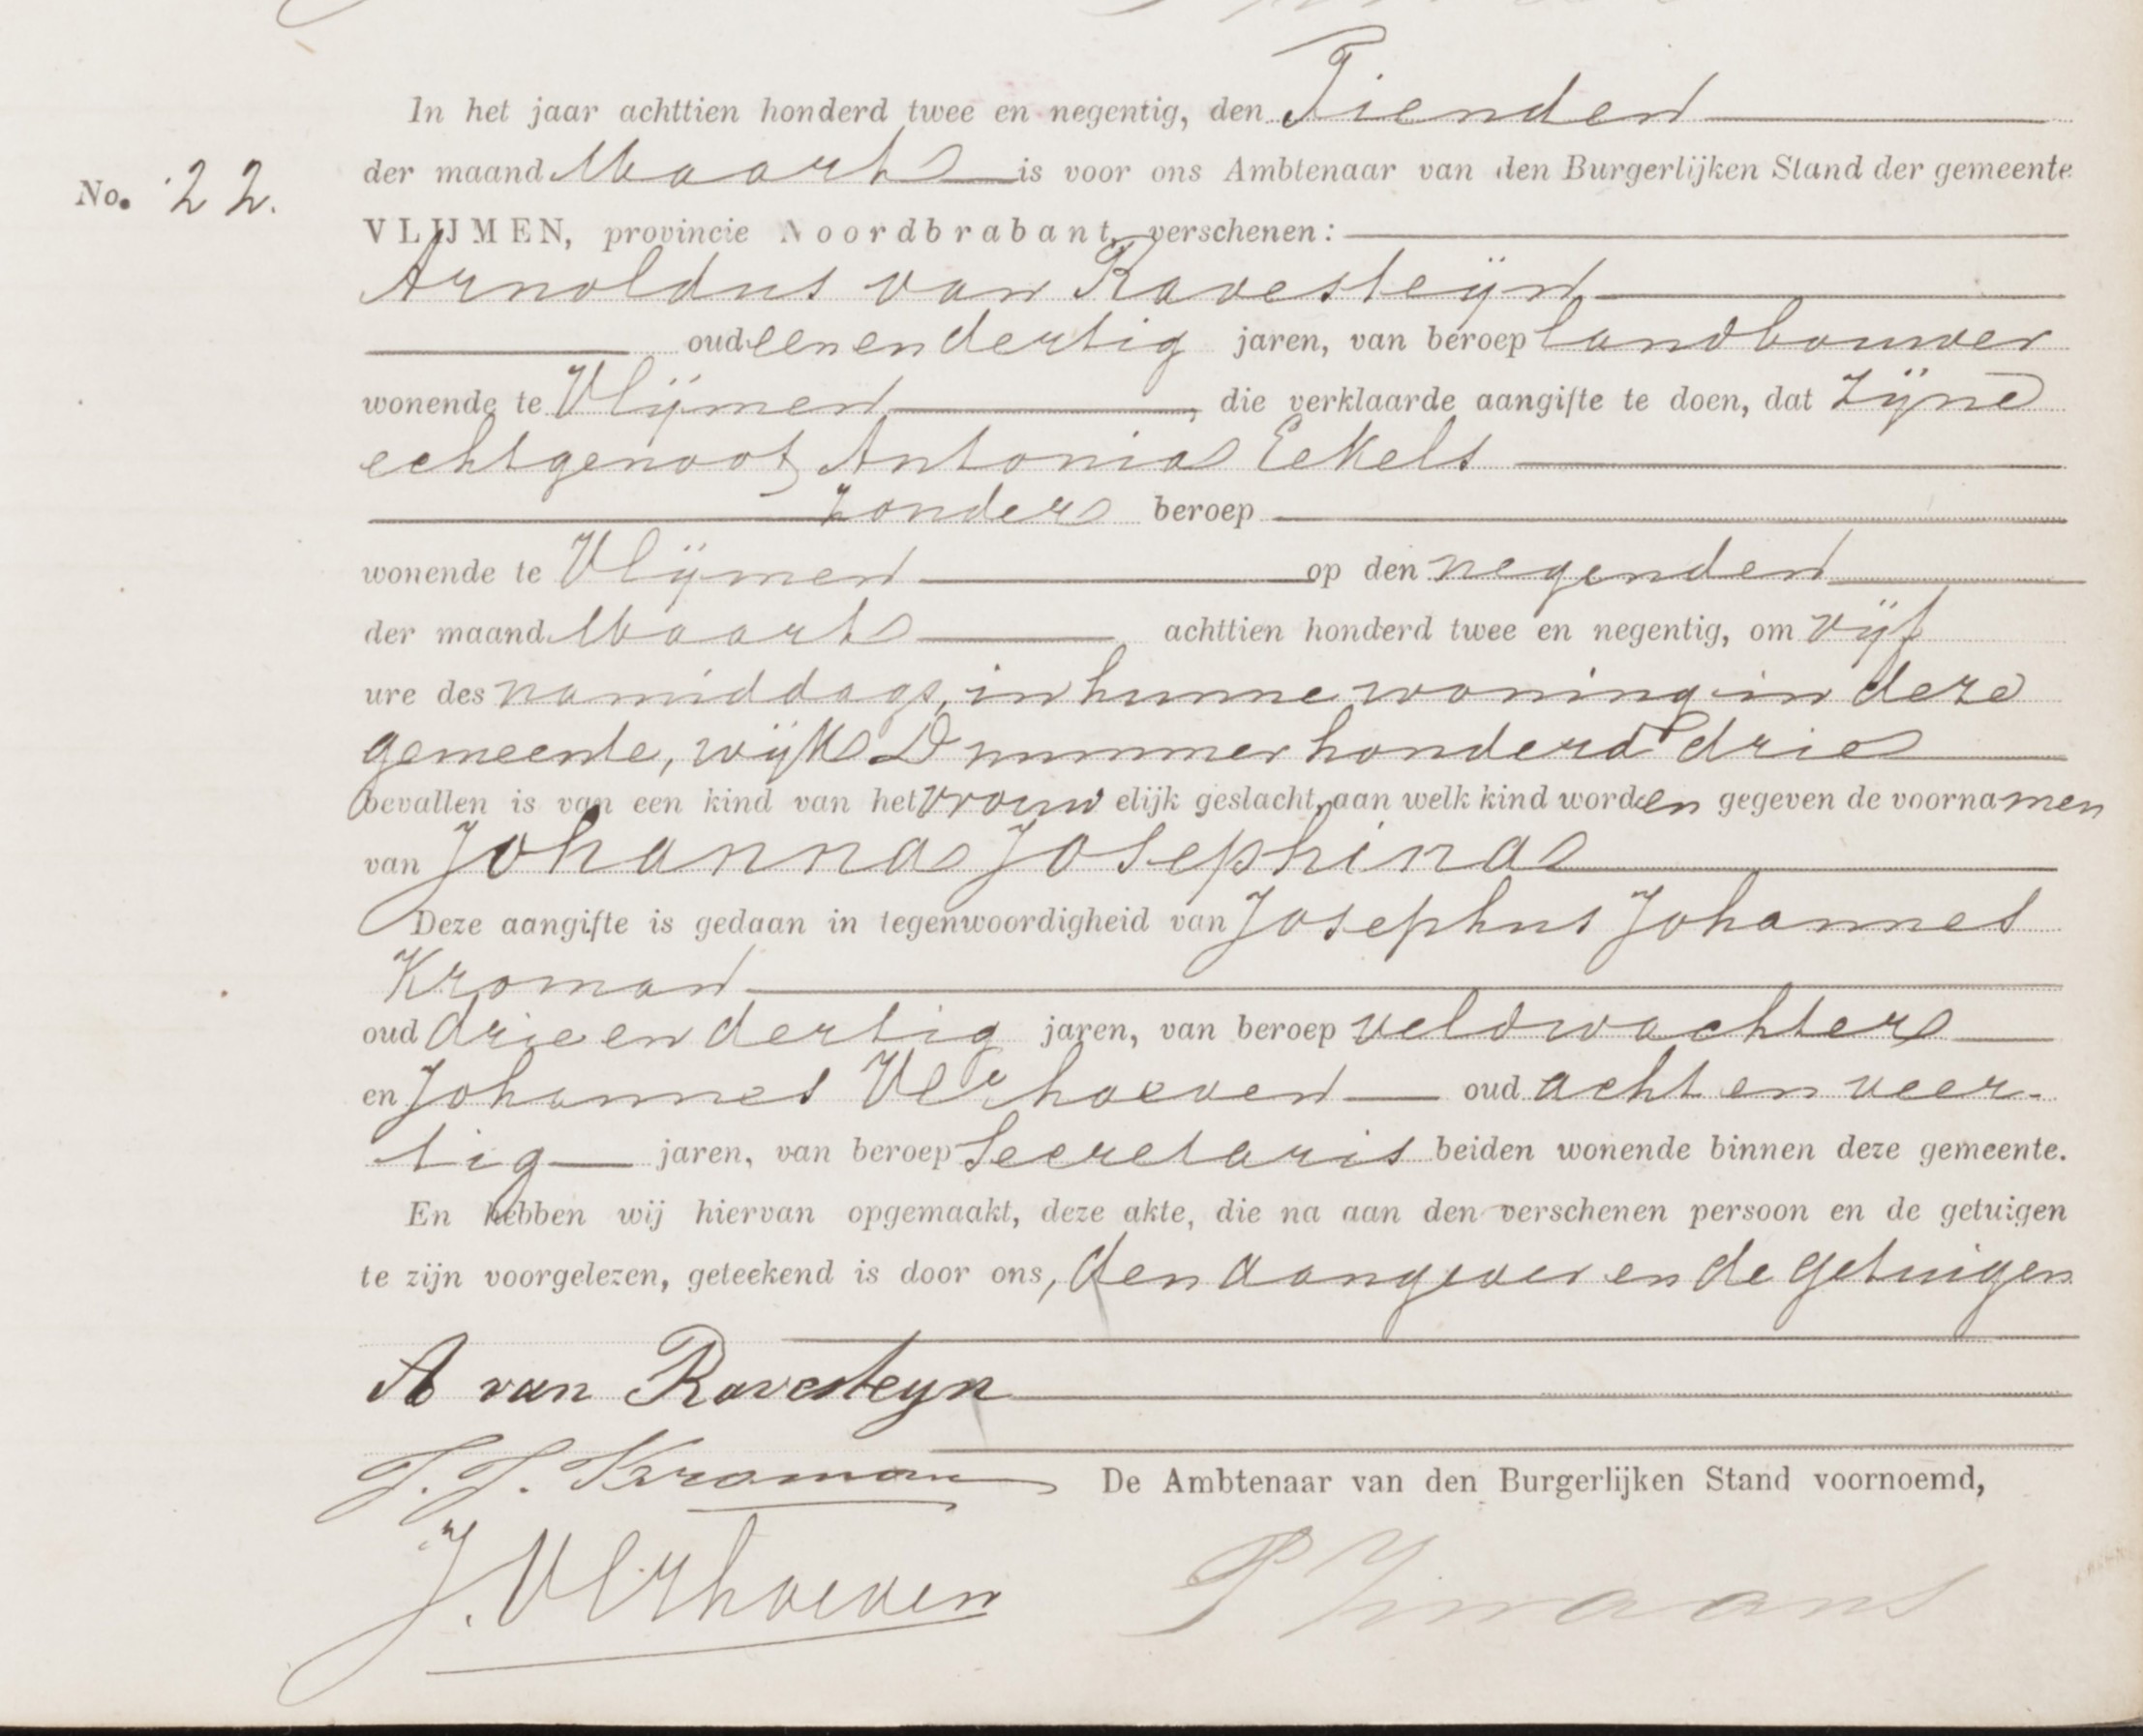 In het jaar achttien honderd twee en negentig, den Tienden
No. 22.
der maand Maart is voor ons Ambtenaar van den Burgerlijken Stand der gemeente
VLIJMEN, provincie Noordbrabant, verschenen:
Arnoldus van Ravesteijn
oud eenendertig jaren, van beroep landbouwer
wonende te Vlijmen, die verklaarde aangifte te doen, dat zijne
echtgenoot, Antonia Eekels
zonder beroep
wonende te Vlijmen op den negenden
der maand Maart achttien honderd twee en negentig, om vijf
ure des namiddags, in hunne woning in deze
gemeente, wijk D nummer honderd drie
bevallen is van een kind van het vrouwelijk geslacht, aan welk kind worden gegeven de voornamen
van Johanna Josephina
Deze aangifte is gedaan in tegenwoordigheid van Josephus Johannes
Kroman
oud drieendertig jaren, van beroep veldwachter
en Johannes Verhoeven oud achtenveer-
tig jaren, van beroep Secretaris beiden wonende binnen deze gemeente.
En hebben wij hiervan opgemaakt, deze akte, die na aan den verschenen persoon en de getuigen
te zijn voorgelezen, geteekend is door ons, den aangever en de getuigen
A van Ravesteyn
J. J. Kroman
De Ambtenaar van den Burgerlijken Stand voornoemd,
J. Verhoeven